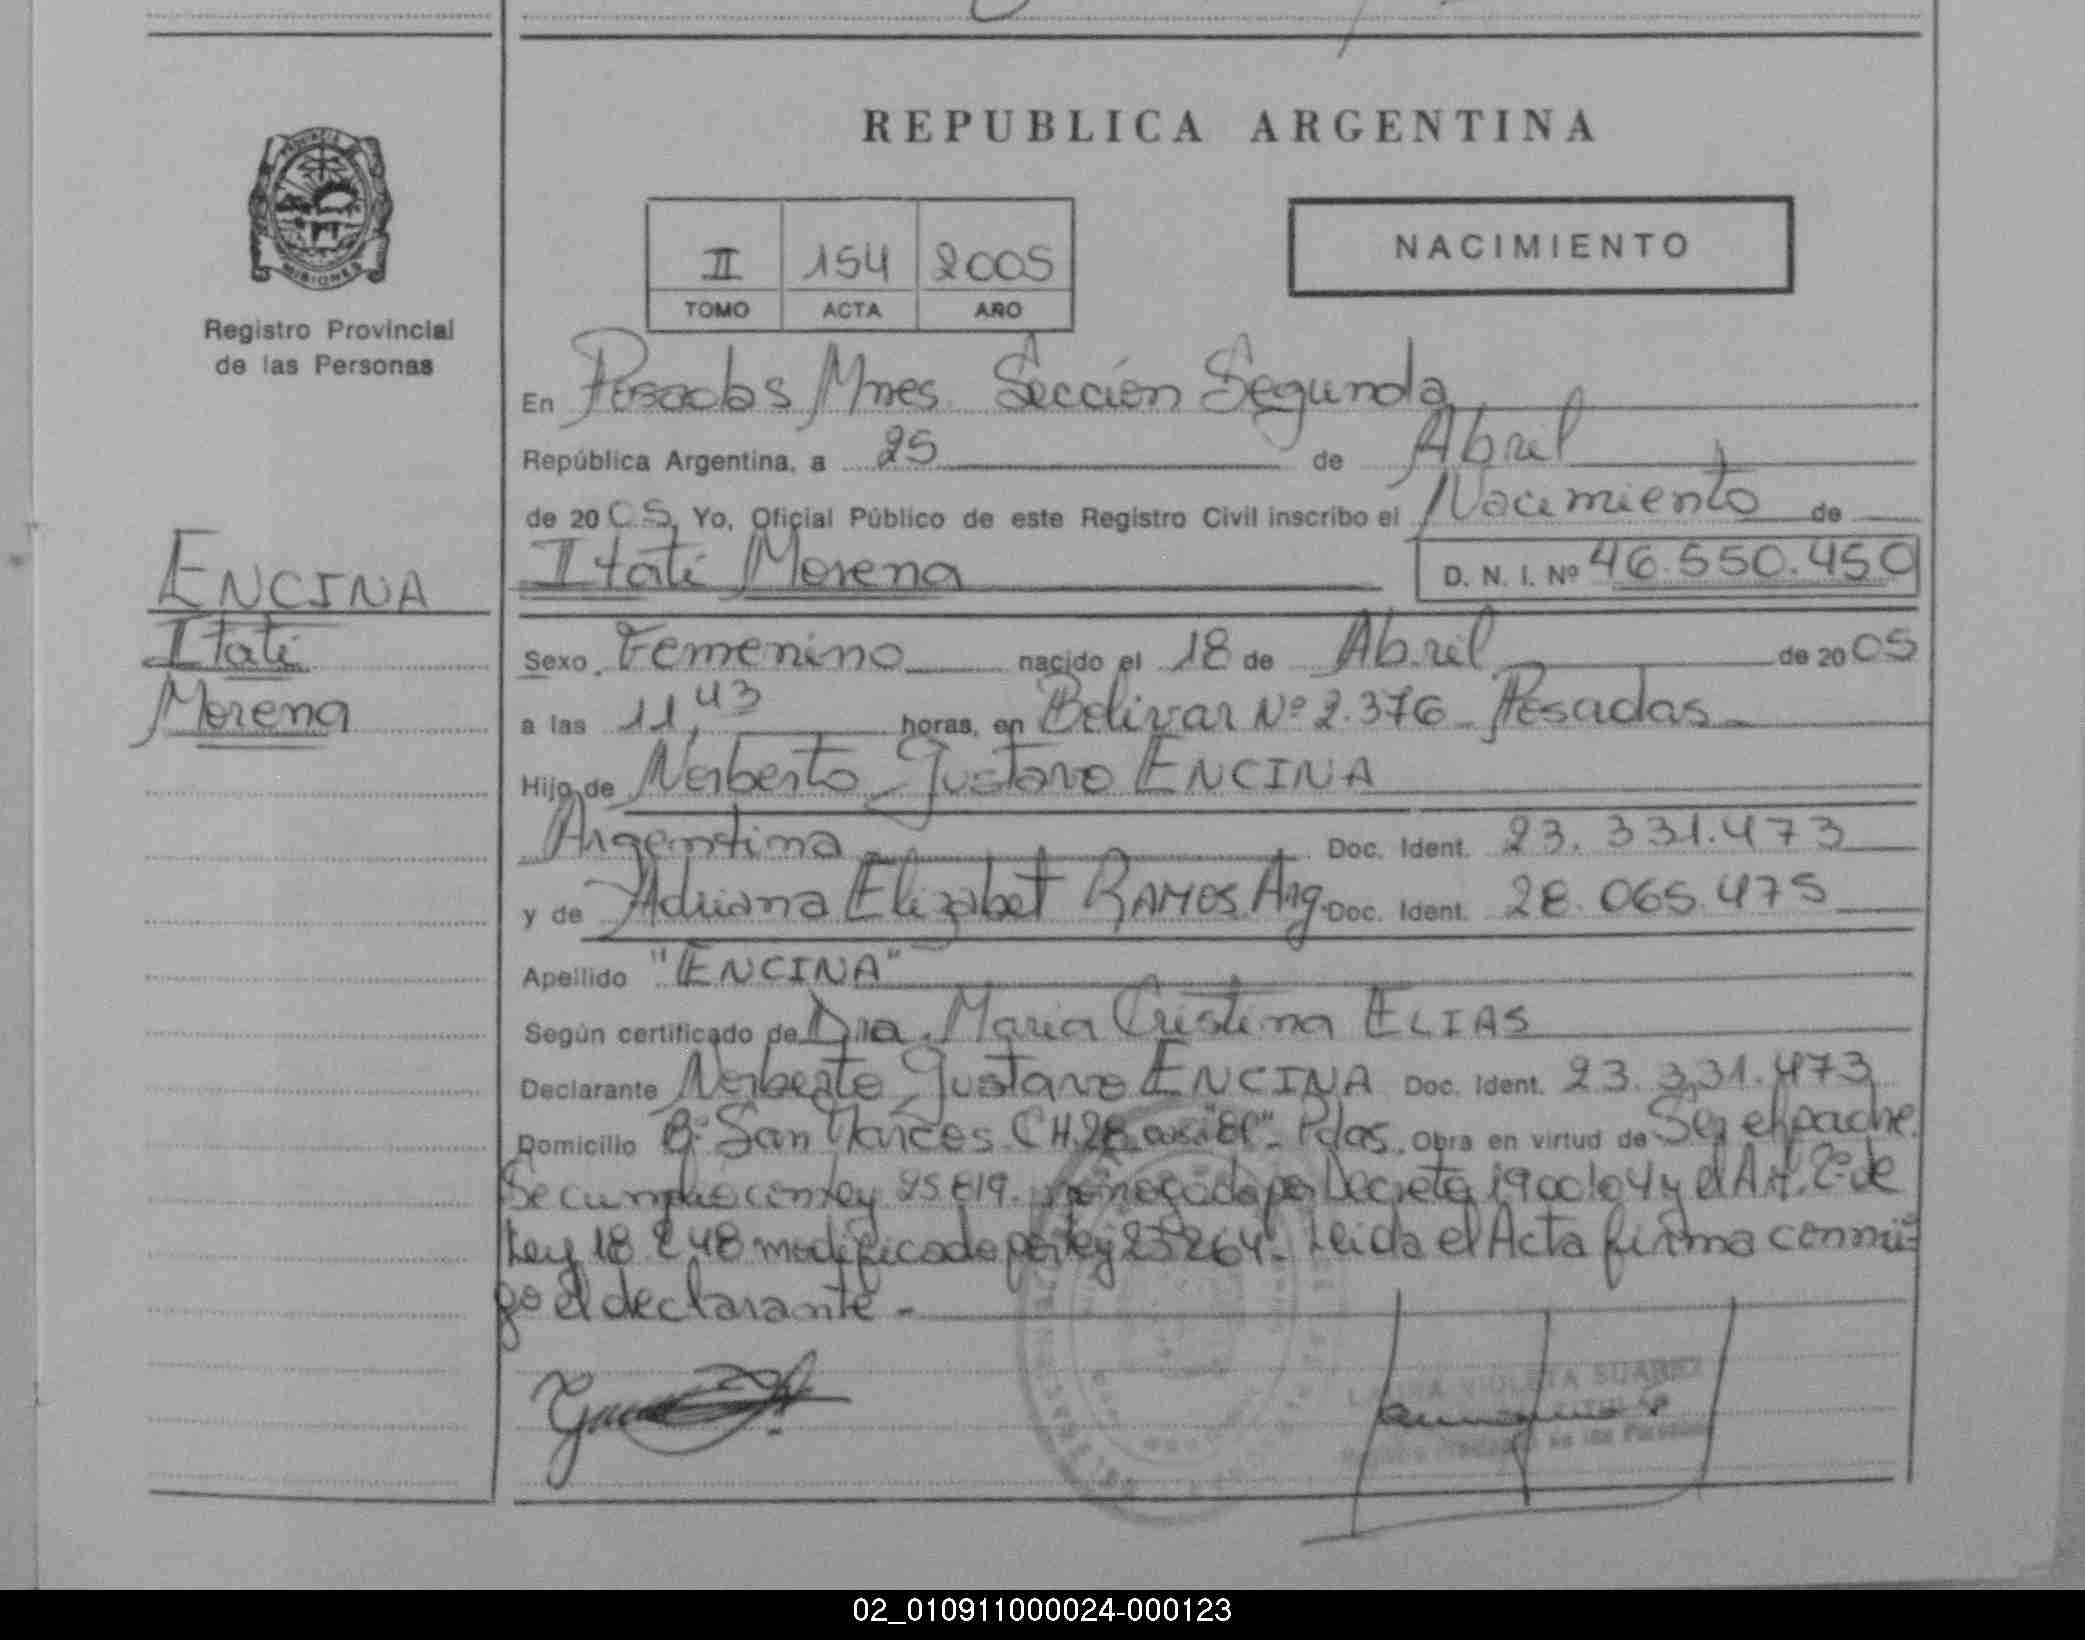 REPUBLICA ARGENTINA
PROVINCIA DE
MISIONES
Registro Provincial
de las Personas
II 154 2005
TOMO ACTA AÑO
NACIMIENTO
En Posadas Mnes. Sección Segunda
República Argentina, a 25 de Abril
de 2005, Yo, Oficial Público de este Registro Civil inscribo el Nacimiento de
Itatí Morena D. N. I. Nº 46.550.450
ENCINA
Itatí
Morena
Sexo Femenino nacido el 18 de Abril de 2005
a las 11,43 horas, en Bolivar Nº 2.376 Posadas
Hijo de Norberto Gustavo ENCINA
Argentina Doc. Ident. 23.331.473
y de Adriana Elizabet RAMOS Arg. Doc. Ident. 28.065.475
Apellido "ENCINA"
Según certificado de Dra. Maria Cristina ELIAS
Declarante Norberto Gustavo ENCINA Doc. Ident. 23.331.473
Domicilio Bº San Marcos CH. 28 Pdas. Obra en virtud de Ser el padre.
Se cumplio con ley 25.819. por Decreto 1900/04 y el Art. 2º de
Ley 18.248 modificado por ley 23264. Leida el Acta firma conmi-
go el declarante.-
LAURA VIOLETA SUAREZ
02_010911000024-000123